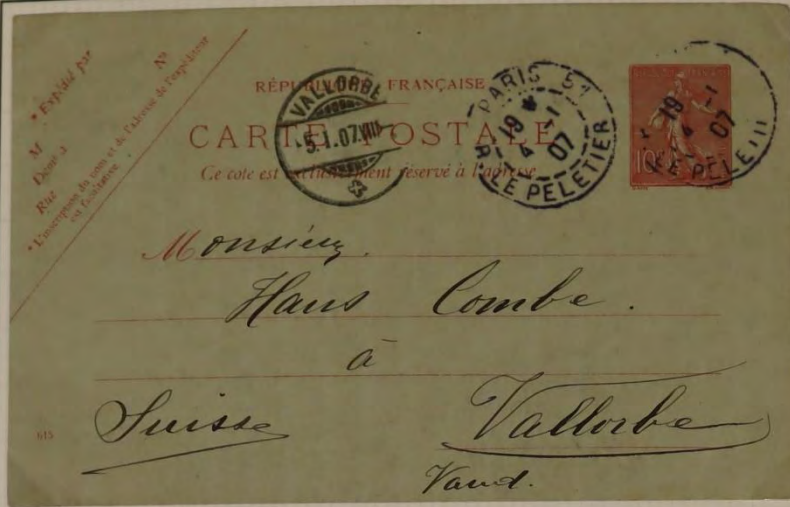 * Expédié par
M
Demeur
Rue
N°
* L'inscription du nom et de l'adresse de l'expéditeur
est facultative
RÉPUBLIQUE FRANÇAISE
CARTE POSTALE
Ce côté est exclusivement réservé à l'adresse
VALLORBE
5.1.07.VIII
PARIS 51
19
4 -1
07
R. LE PELETIER
10c
19
4 -1
07
LE PELETI
Monsieur
Hans Combe.
à
Suisse
Vallorbe
Vaud.
615